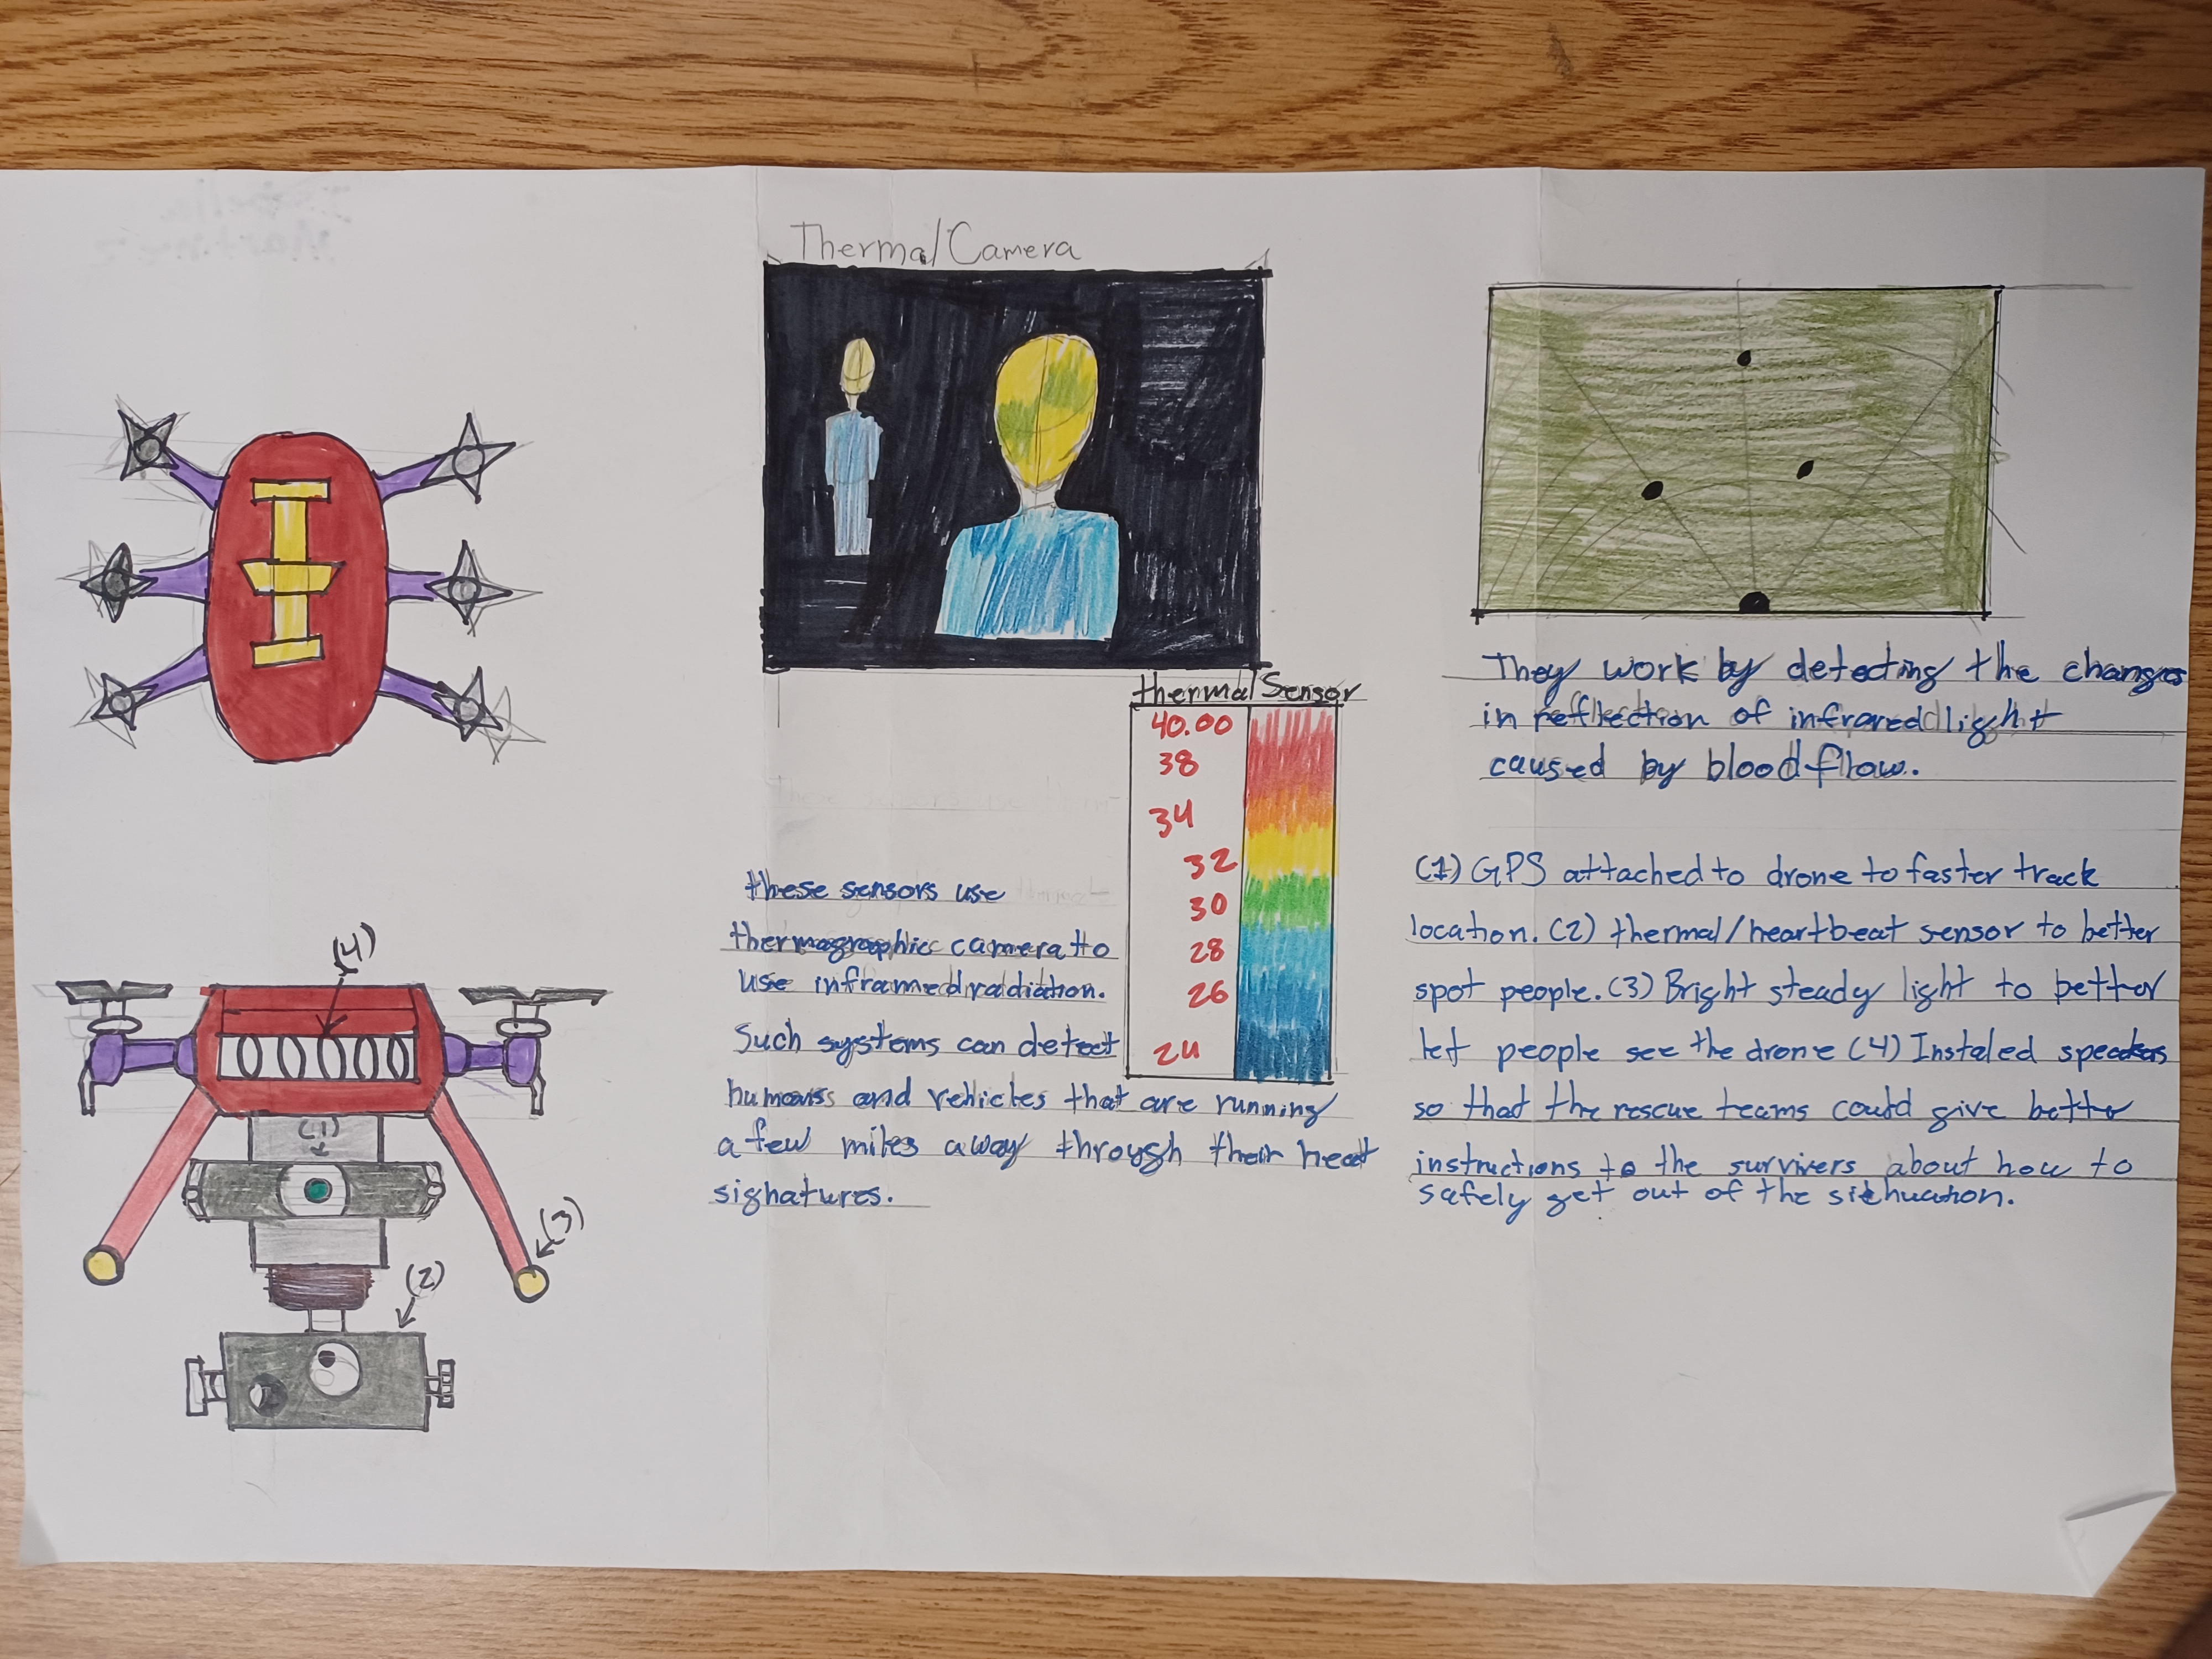 Thermal Camera
thermal Sensor
40.00
38
34
32
30
28
26
24
these sensors use
thermographic camera to
use inframed radiation.
Such systems can detect
humans and vehicles that are running
a few miles away through their heat
sighatures.
They work by detecting the changes
in reflection of infrared light
caused by blood flow.
(1) GPS attached to drone to faster track
location. (2) thermal/heartbeat sensor to better
spot people. (3) Bright steady light to better
let people see the drone (4) Instaled speakers
so that the rescue teams could give better
instructions to the survivers about how to
safely get out of the sithuation.
(4)
(1)
(3)
(2)